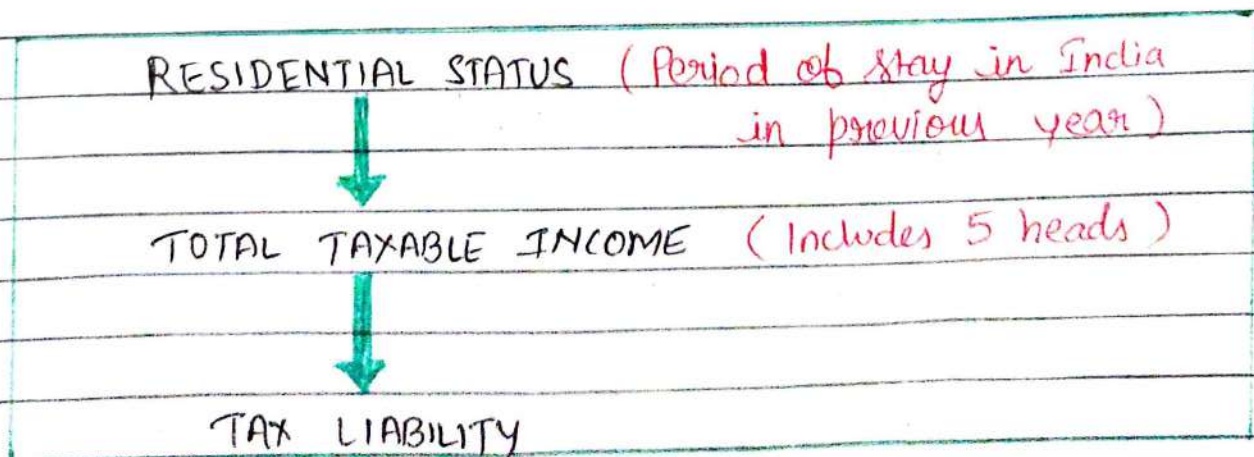 RESIDENTIAL STATUS (Period of stay in India
in previous year)
TOTAL TAXABLE INCOME (Includes 5 heads)
TAX LIABILITY